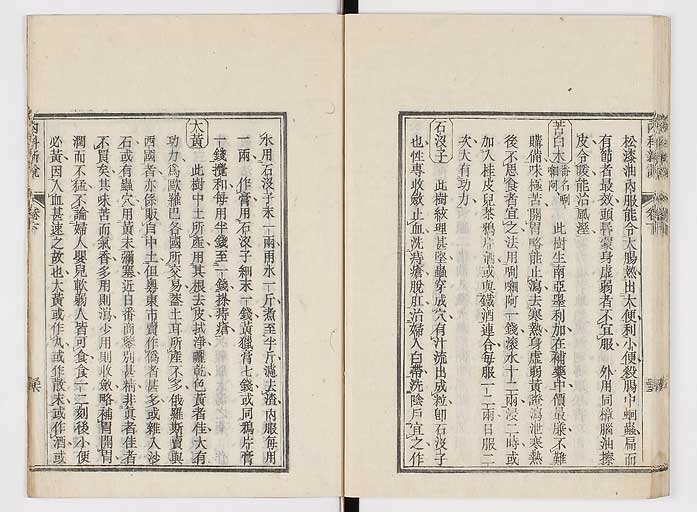 松漆油內服能令大腸熱出大便利小便殺腸中蛔蟲扁而
有節者最效頭暈蒙身虛弱者不宜服　外用同樟腦油擦
皮令暖能治風溼
苦白木　番名喇嚹阿　此樹生南亞墨利加在補藥中價最廉不難
購備味極苦開胃略能止瀉去寒熱身虛弱黃證瀉泄寒熱
後不思食者宜之法用喇嚹阿一錢滾水十二兩浸二時或
加入桂皮兒茶鴉片酒或與鐵酒連合每服一二兩日服二
次大有功力
石沒子　此樹紋理甚堅蟲穿成穴有汁流出成粒卽石沒子
也性專收斂止血洗痔瘡脫肛治婦人白帶洗陰戶宜之作
水用石沒子末一兩雨水一斤煮至半斤濾去渣內服每用
一兩　作膏用石沒子細末一錢黃獵膏七錢或同鴉片膏
十錢攪和每用半錢至一錢搽痔瘡
大黃　此樹中土所產用其根去皮拭淨曬乾色黃者佳大有
功力爲歐羅巴各國所交易葢土耳所產不多俄羅斯賣與
西國者亦係販自中土但粤東市賣作僞者甚多或雜入沙
石或有蟲穴用黃末彌塞近日番商鑒別甚精非眞者佳者
不買矣其味苦而氣香多用則瀉少用則收斂略補胃開胃
潤而不猛不論婦人嬰兒軟弱人皆可食食一二刻後小便
必黃因入血甚速之故也大黃或作丸或作散末或作酒或